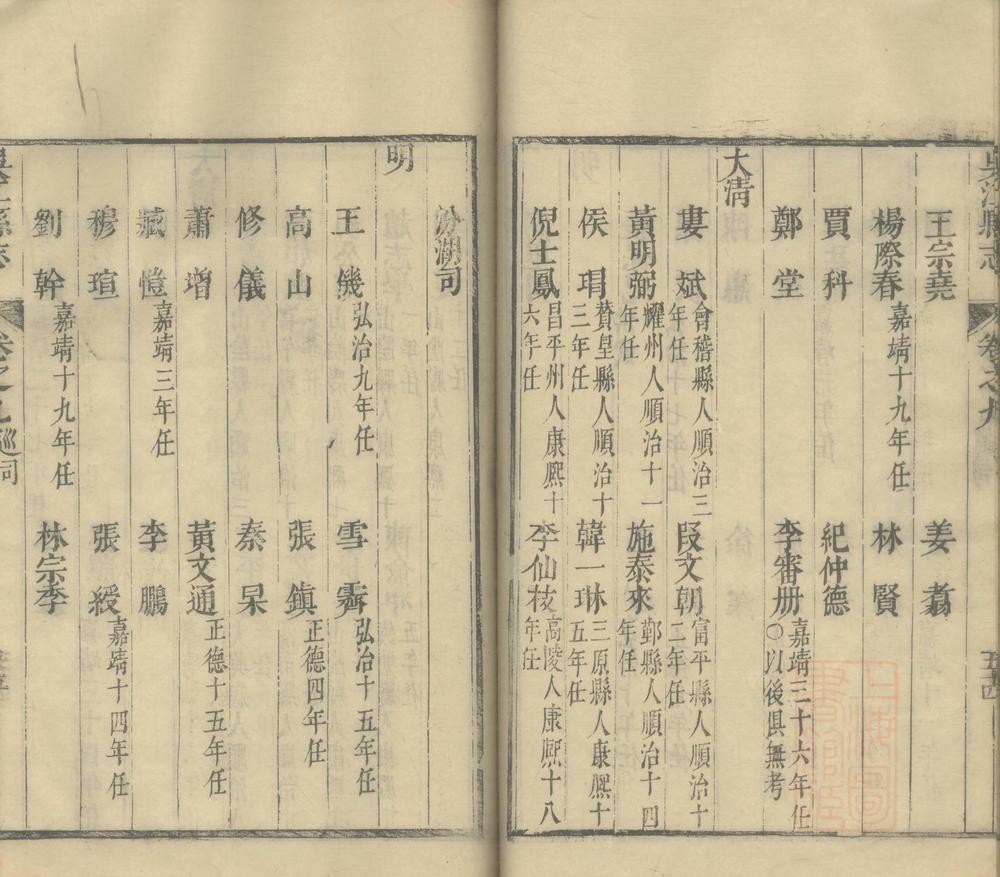 吳江縣志 卷之九 五十四
王宗堯 姜
楊際春 嘉靖十九年任 林賢
賈科 紀仲德
鄭堂 李審册 嘉靖三十六年任○以後俱無考
大清
婁斌 會稽縣人順治三年任 段文朝 富平縣人順治十二年任
黃明弼 耀州人順治十一年任 施泰來 鄞縣人順治十四年任
侯珇 贊皇縣人順治十三年任 韓一琳 三原縣人康熈十五年任
倪士鳳 昌平州人康熈十六年任 李仙枝 高陵人康熈十八年任
汾湖司
明
王儀 弘治九年任 雪霽 弘治十五年任
高山 張鎮 正德四年任
修儀 秦杲
蕭增 黃文通 正德十五年任
臧愷 嘉靖三年任 李鵬
穆瑄 張綬 嘉靖十四年任
劉幹 嘉靖十九年任 林宗季
吳江縣志 卷之九 巡司